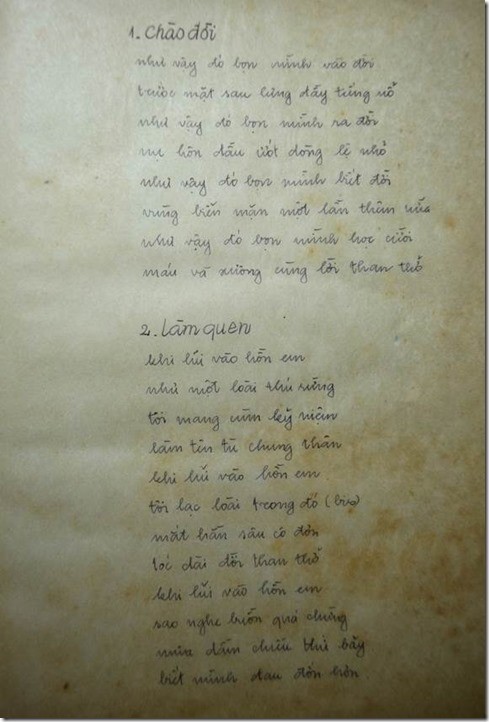 1. Chào đời
như vậy đó bọn mình vào đời
trước mặt sau lưng đầy tiếng nổ
như vậy đó bọn mình ra đời
mẹ hôn dấu ướt dòng lệ nhỏ
như vậy đó bọn mình biết đời
vùng biển mặn một lần thêm nữa
như vậy đó bọn mình học cười
máu và xương cũng lời than thở
2. Làm quen
khi lủi vào hồn em
như một loài thú rừng
tôi mang cùm kỷ niệm
làm tên tù chung thân
khi lủi vào hồn em
tôi lạc loài trong đó (bis)
mắt hằn sâu cô đơn
tóc dài đời than thở
khi lủi vào hồn em
sao nghe buồn quá chừng
mưa dầm chiều thứ bảy
biết mình đau đớn hơn